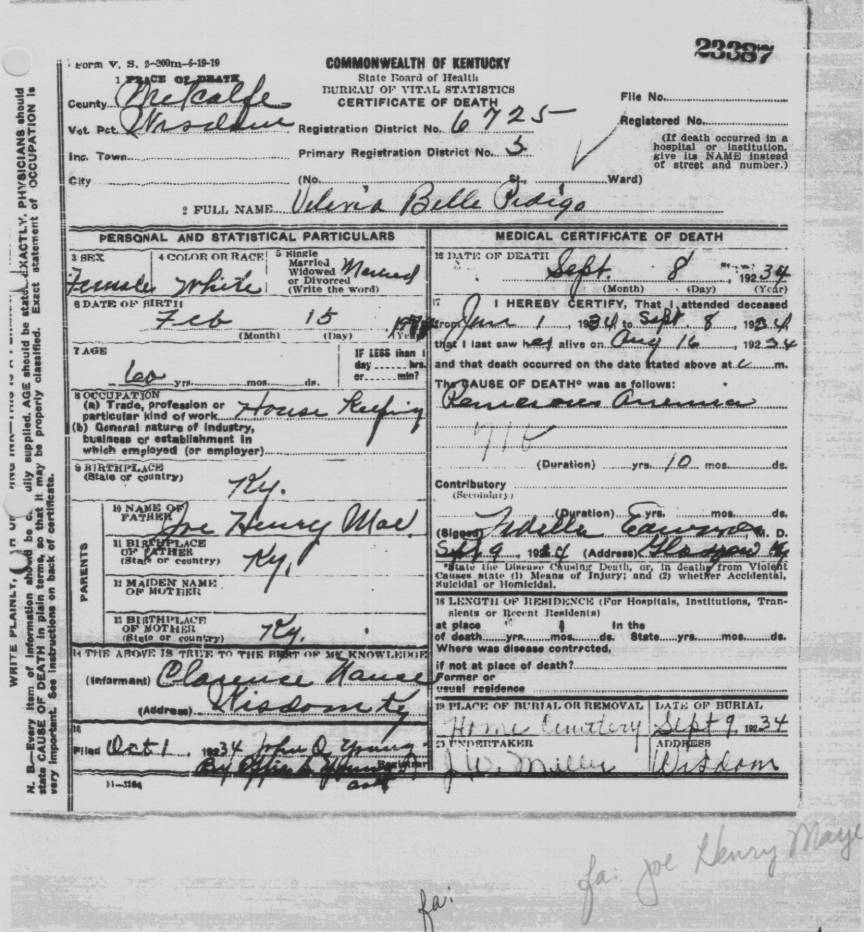 23387
Form V. S. 2-200m-6-19-19
COMMONWEALTH OF KENTUCKY
State Board of Health
BUREAU OF VITAL STATISTICS
CERTIFICATE OF DEATH
1 PLACE OF DEATH
County Metcalfe
Vot. Pct. Wisdom
Inc. Town
City
Registration District No. 6725
Primary Registration District No. 5
(No. St., Ward)
File No.
Registered No.
(If death occurred in a
hospital or institution,
give its NAME instead
of street and number.)
2 FULL NAME Belle Pedigo
PERSONAL AND STATISTICAL PARTICULARS
3 SEX
Female
4 COLOR OR RACE
White
5 Single
Married
Widowed
or Divorced
(Write the word)
Married
6 DATE OF BIRTH
Feb 15
(Month) (Day) (Year)
7 AGE
60 yrs. mos. ds.
IF LESS than 1
day hrs.
or min?
8 OCCUPATION
(a) Trade, profession or
particular kind of work House Keeping
(b) General nature of industry,
business or establishment in
which employed (or employer)
9 BIRTHPLACE
(State or country)
Ky.
PARENTS
10 NAME OF
FATHER
Joe Henry
11 BIRTHPLACE
OF FATHER
(State or country)
Ky.
12 MAIDEN NAME
OF MOTHER
13 BIRTHPLACE
OF MOTHER
(State or country)
Ky.
14 THE ABOVE IS TRUE TO THE BEST OF MY KNOWLEDGE
(Informant) Clarence
(Address) Wisdom Ky
15
Filed Oct 1, 1934 John O. Young
By Effie Young Registrar
11-3184
MEDICAL CERTIFICATE OF DEATH
16 DATE OF DEATH
Sept. 8 1934
(Month) (Day) (Year)
17 I HEREBY CERTIFY, That I attended deceased
from 1, 1934 to Sept. 8, 1934
that I last saw her alive on Aug 16, 1934
and that death occurred on the date stated above at m.
The CAUSE OF DEATH* was as follows:
(Duration) yrs. 10 mos. ds.
Contributory
(Secondary)
(Duration) yrs. mos. ds.
(Signed) M. D.
Sept 9, 1934 (Address) Glasgow Ky
*State the Disease Causing Death, or, in deaths from Violent
Causes state (1) Means of Injury; and (2) whether Accidental,
Suicidal or Homicidal.
18 LENGTH OF RESIDENCE (For Hospitals, Institutions, Tran-
sients or Recent Residents)
at place In the
of death yrs. mos. ds. State yrs. mos. ds.
Where was disease contracted,
if not at place of death?
Former or
usual residence
19 PLACE OF BURIAL OR REMOVAL
Home Cemetery
DATE OF BURIAL
Sept 9, 1934
20 UNDERTAKER
J. W. Miller
ADDRESS
Wisdom
N. B.—Every item of information should be supplied. AGE should be stated EXACTLY. PHYSICIANS should
state CAUSE OF DEATH in plain terms, so that it may be properly classified. Exact statement of OCCUPATION is
very important. See instructions on back of certificate.
WRITE PLAINLY,
fa: Joe Henry Maye
fa: